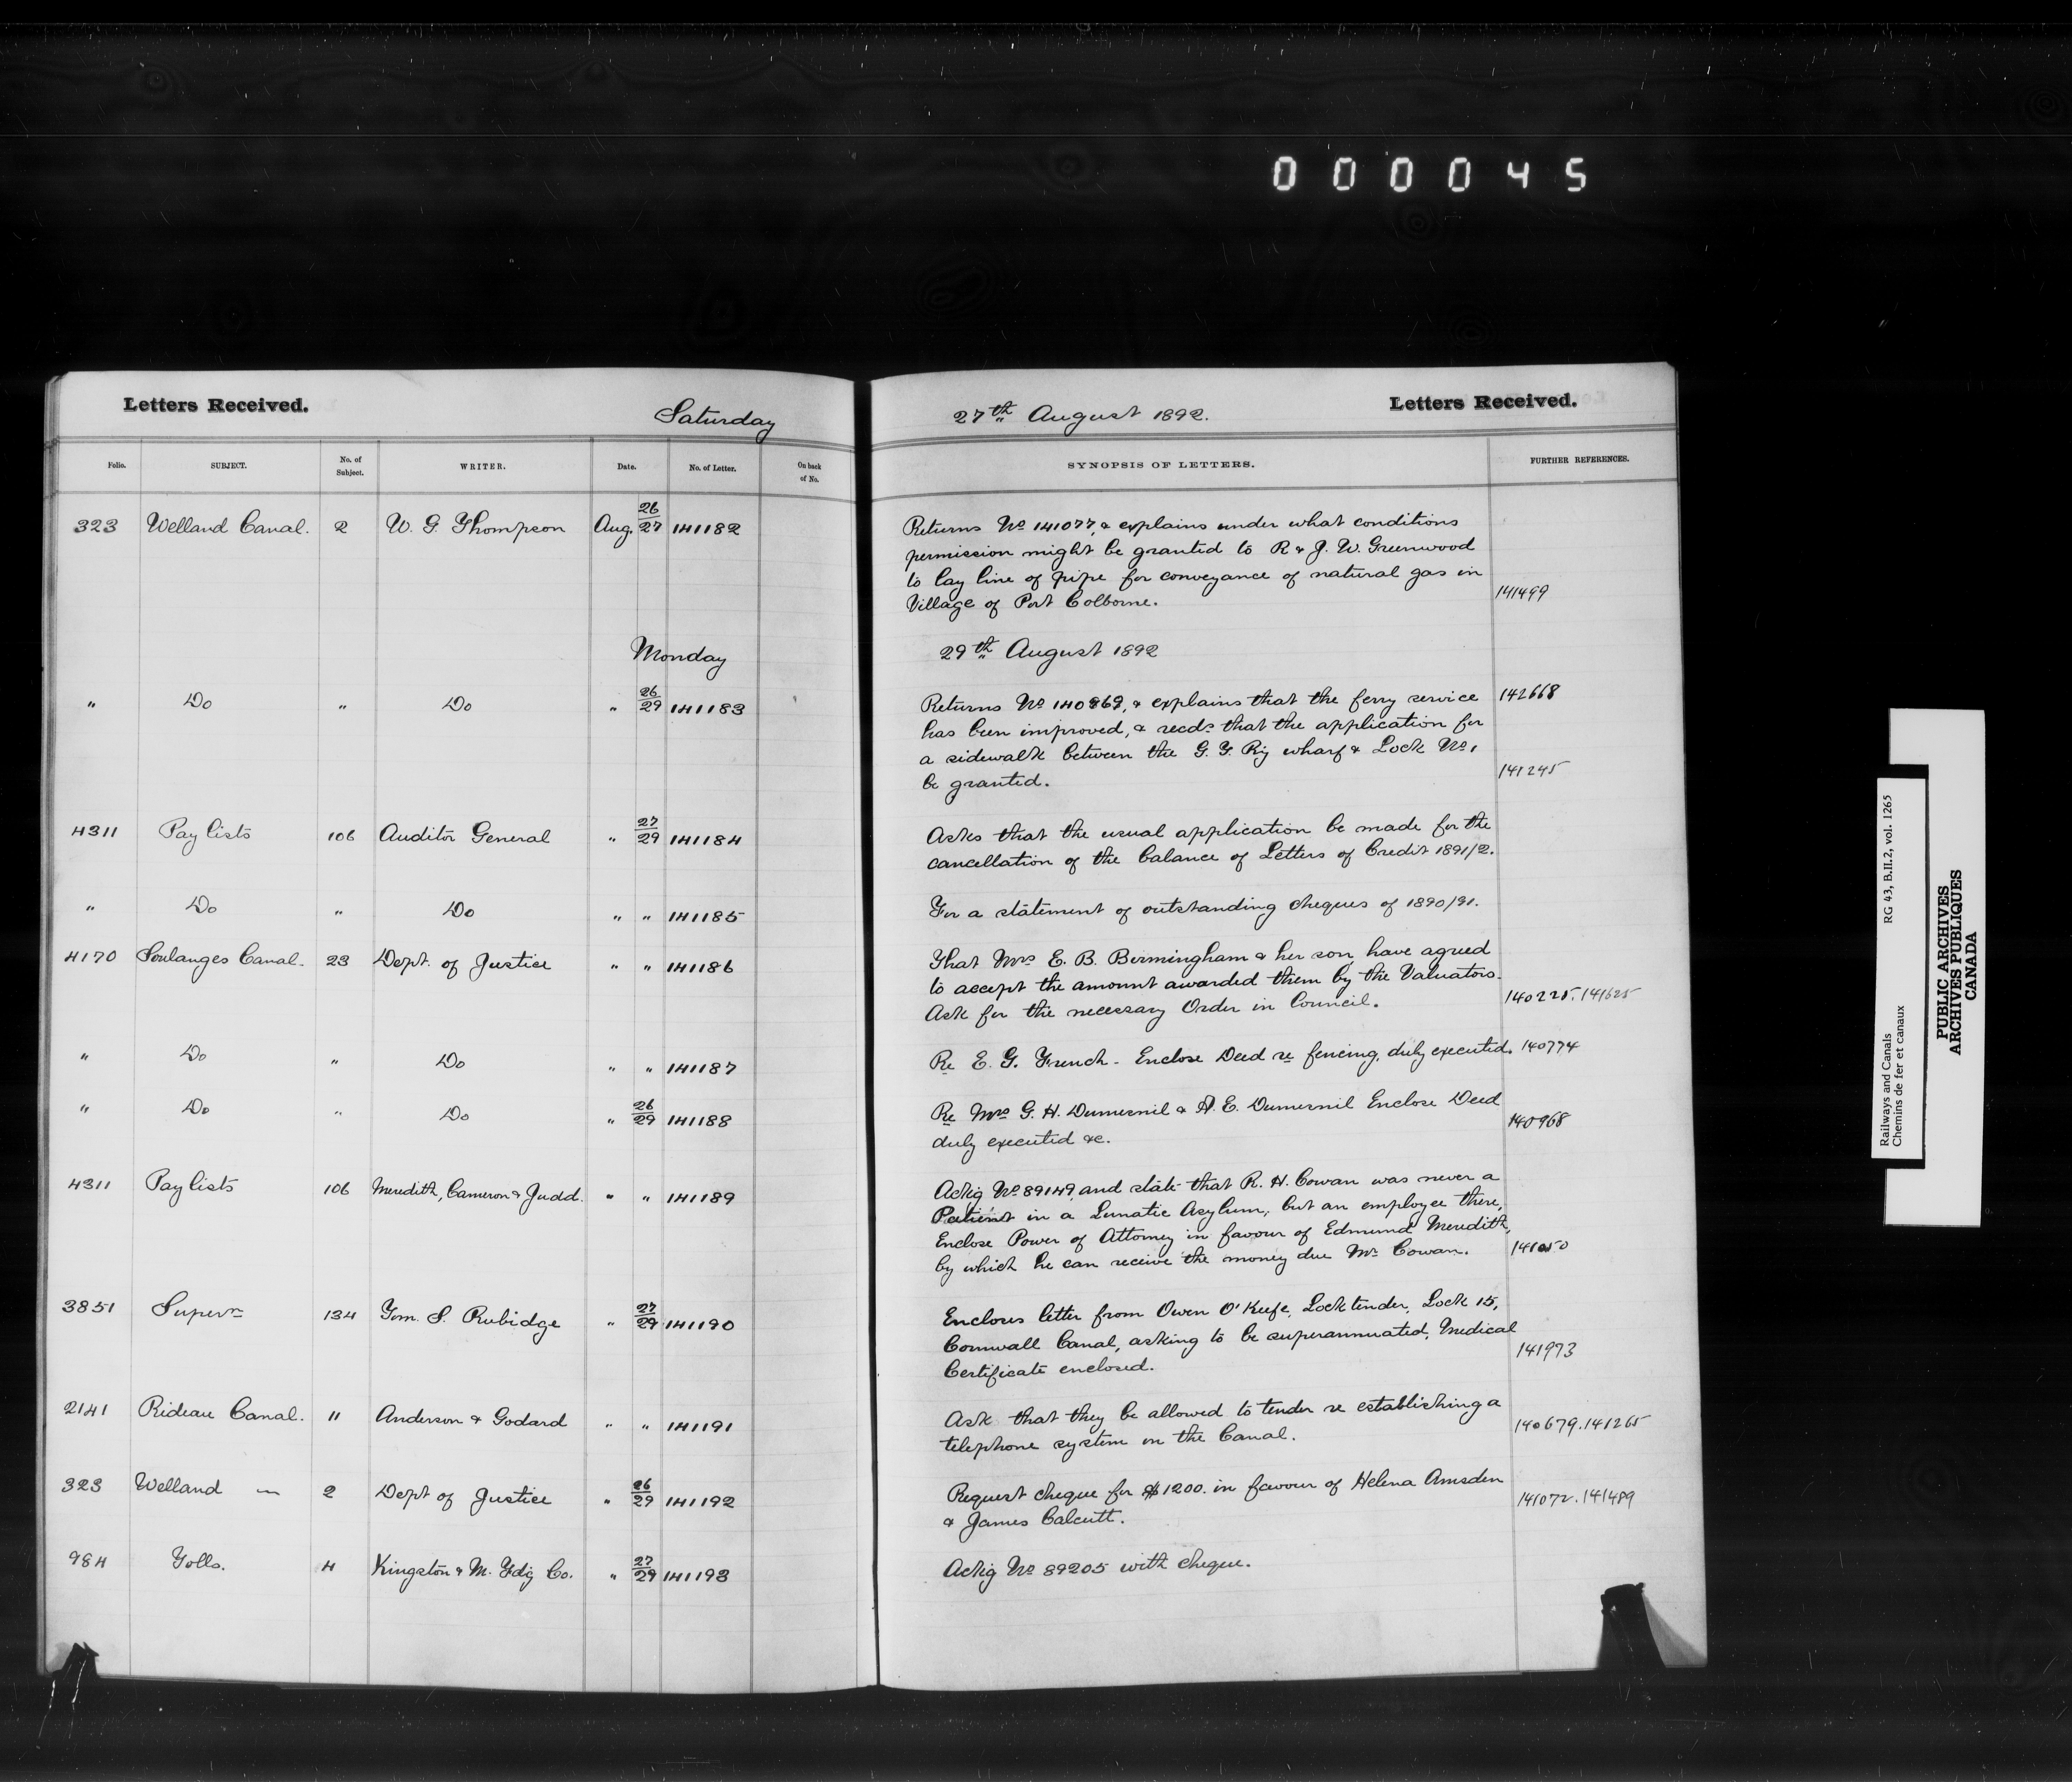 000045
Letters Received.
Saturday
27th August 1892.
Letters Received.
Folio. SUBJECT. No. of Subject. WRITER. Date. No. of Letter. On back of No. SYNOPSIS OF LETTERS. FURTHER REFERENCES.
323 Welland Canal. 2 W. G. Thompson Aug. 26/27 141182 Returns No 141077, & explains under what conditions
permission might be granted to R & J. W. Greenwood
to lay line of pipe for conveyance of natural gas in
Village of Port Colborne. 141499
Monday 29th August 1892
" Do " Do " 26/29 141183 Returns No 140869, & explains that the ferry service 142668
has been improved, & recds that the application for
a sidewalk between the G. T. Ry wharf & Lock No 1
be granted. 141245
4311 Pay lists 106 Auditor General " 27/29 141184 Asks that the usual application be made for the
cancellation of the balance of Letters of Credit 1891/2.
" Do " Do " " 141185 For a statement of outstanding cheques of 1890/91.
4170 Soulanges Canal. 23 Dept. of Justice " " 141186 That Mrs E. B. Birmingham & her son, have agreed
to accept the amount awarded them by the Valuators.
Ask for the necessary Order in Council. 140225. 141625
" Do " Do " " 141187 Re E. G. French - Enclose Deed re fencing, duly executed. 140774
" Do " Do " 26/29 141188 Re Mrs G. H. Dumesnil & A. E. Dumesnil Enclose Deed
duly executed &c. 140968
4311 Pay lists 106 Meredith, Cameron & Judd. " " 141189 Ackg No 89149, and state that R. H. Cowan was never a
Patient in a Lunatic Asylum, but an employee there,
Enclose Power of Attorney in favour of Edmund Meredith,
by which he can receive the money due Mr Cowan. 141050
3851 Supern 134 Tom. S. Rubidge " 27/29 141190 Encloses letter from Owen O'Keefe, Lock tender, Lock 15,
Cornwall Canal, asking to be superannuated, Medical
Certificate enclosed. 141973
2141 Rideau Canal. 11 Anderson & Godard " " 141191 Ask that they be allowed to tender re establishing a
telephone system on the Canal. 140679. 141265
323 Welland " 2 Dept of Justice " 26/29 141192 Request cheque for $1200. in favour of Helena Amsden
& James Calcutt. 141072. 141489
984 Tolls. 4 Kingston & M. Fdg Co. " 27/29 141193 Ackg No 89205 with cheque.
Railways and Canals RG 43, B.II.2, vol. 1265
Chemins de fer et canaux
PUBLIC ARCHIVES
ARCHIVES PUBLIQUES
CANADA